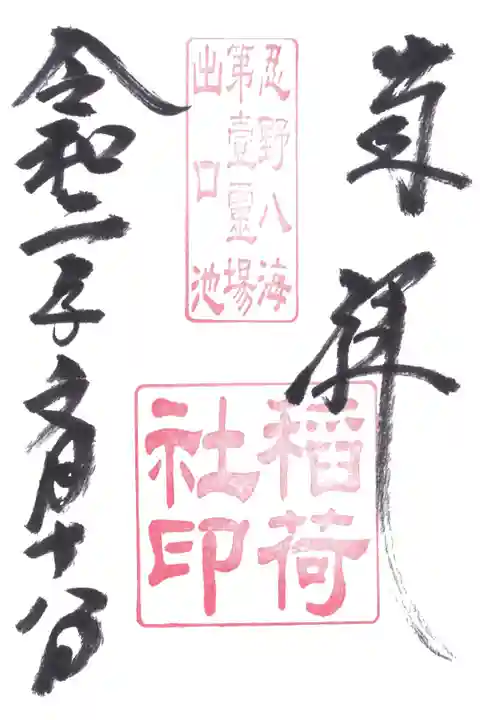 奉拝
忍野八海
第壹靈場
出口池
稲荷
社印
令和二年文月十八日